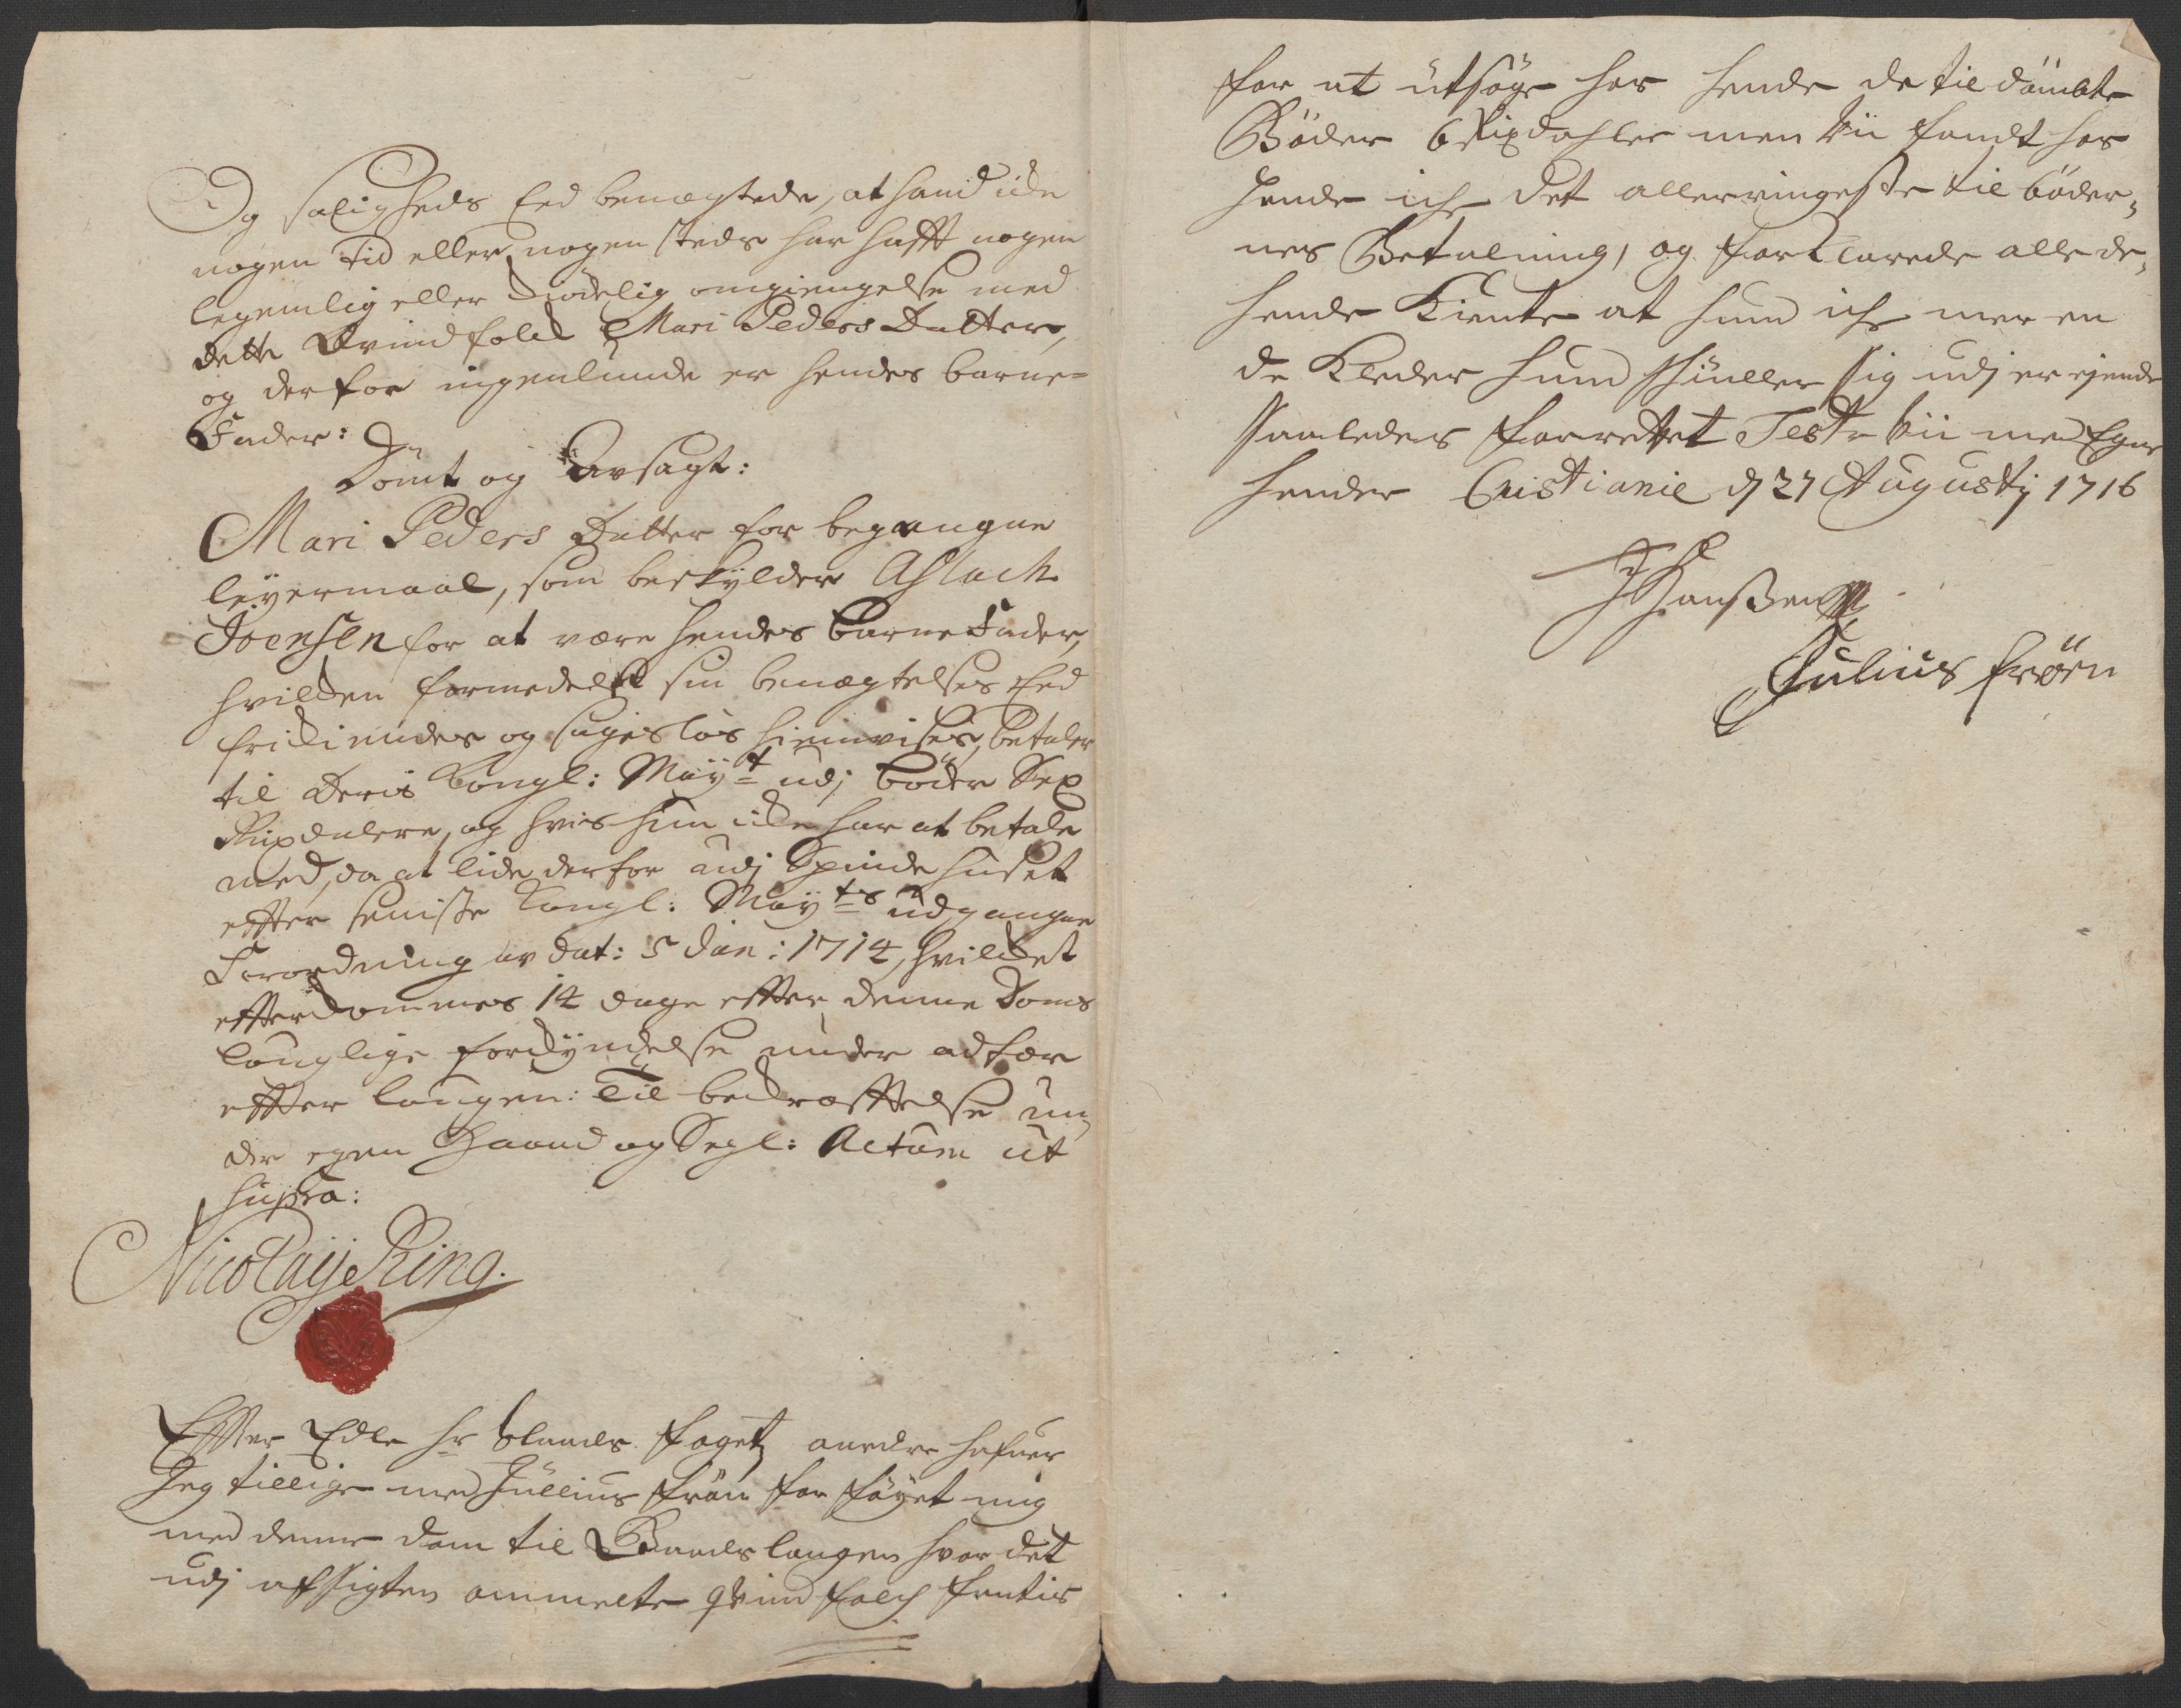 Og saligheds Eed benægtede, at hand icke
nogen tid eller nogen steds har hafft nogen
legemlig eller kiødelig omgiengelse med
dette Qvindfolck Mari Peders Datter,
og derfor ingenlunde er hendes barne=
Fader:
Dømt og Avsagt:
Mari Peders Datter for begangne
leyermaal, som beskylder Aslack
Joensen for at være hendes barne Fader,
hvilcken formedelst sin benægtelses Eed
frikiendes og sagesløs hiemvises, betaler
til Deris Kongl: May:t udj bøder Sex
Rixdalere, og hvis hun icke har at betale
med, da at lide derfor udj Spindehuset
effter seniste Kongl: May:ts udgangne
Forordning av dat: 5 Jan: 1714, hvilcket
efterkommes 14 dage efter denne Doms
louglige forkyndelse under adfær
effter lougen: Til bekræfftelse un,
der egen Haand og Segl: Actum ut
supra:
Nicolaij Ring.
Effter Edle hr Slauds fogetz ordre hafuer
Jeg tillige med Jullius frøn for føyet mig
med denne dom til Vaardslougen hvor det
udj afsigten ommelte qvindfolch fantis
for at utsøge hos hende de til dømbte
Bøder 6 Rixdahler men vii fandt hos
hende iche det allerringeste til bøder,
nes Betalning, og forklarede alle de,
hende Kiente at hun iche mer en
de Kleder hun skiuller sig udj er ejende
saaledes forrettet Teste vii med Egne
hender Cristianie d 27 Augustij 1716
J Hansen
Julius frøen